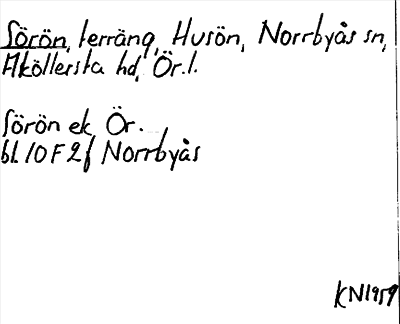 Sörön, terräng, Husön, Norrbyås sn,
Aköllersta hd, Ör. l.
Sörön ek Ör.
bl. 10 F 2 f Norrbyås
KN 1959